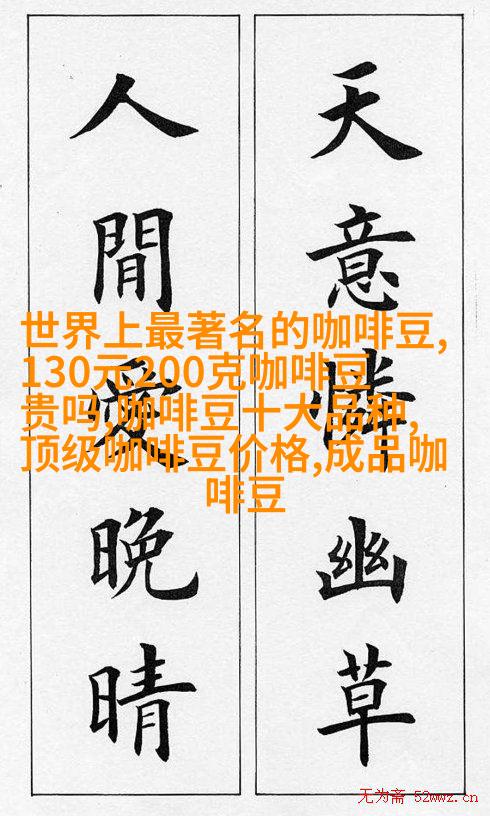 天意憐幽草
人間愛晚晴
世界上最著名的咖啡豆,
130元200克咖啡豆
贵吗,咖啡豆十大品种,
顶级咖啡豆价格,成品咖
啡豆
无为斋 52wwz.cn